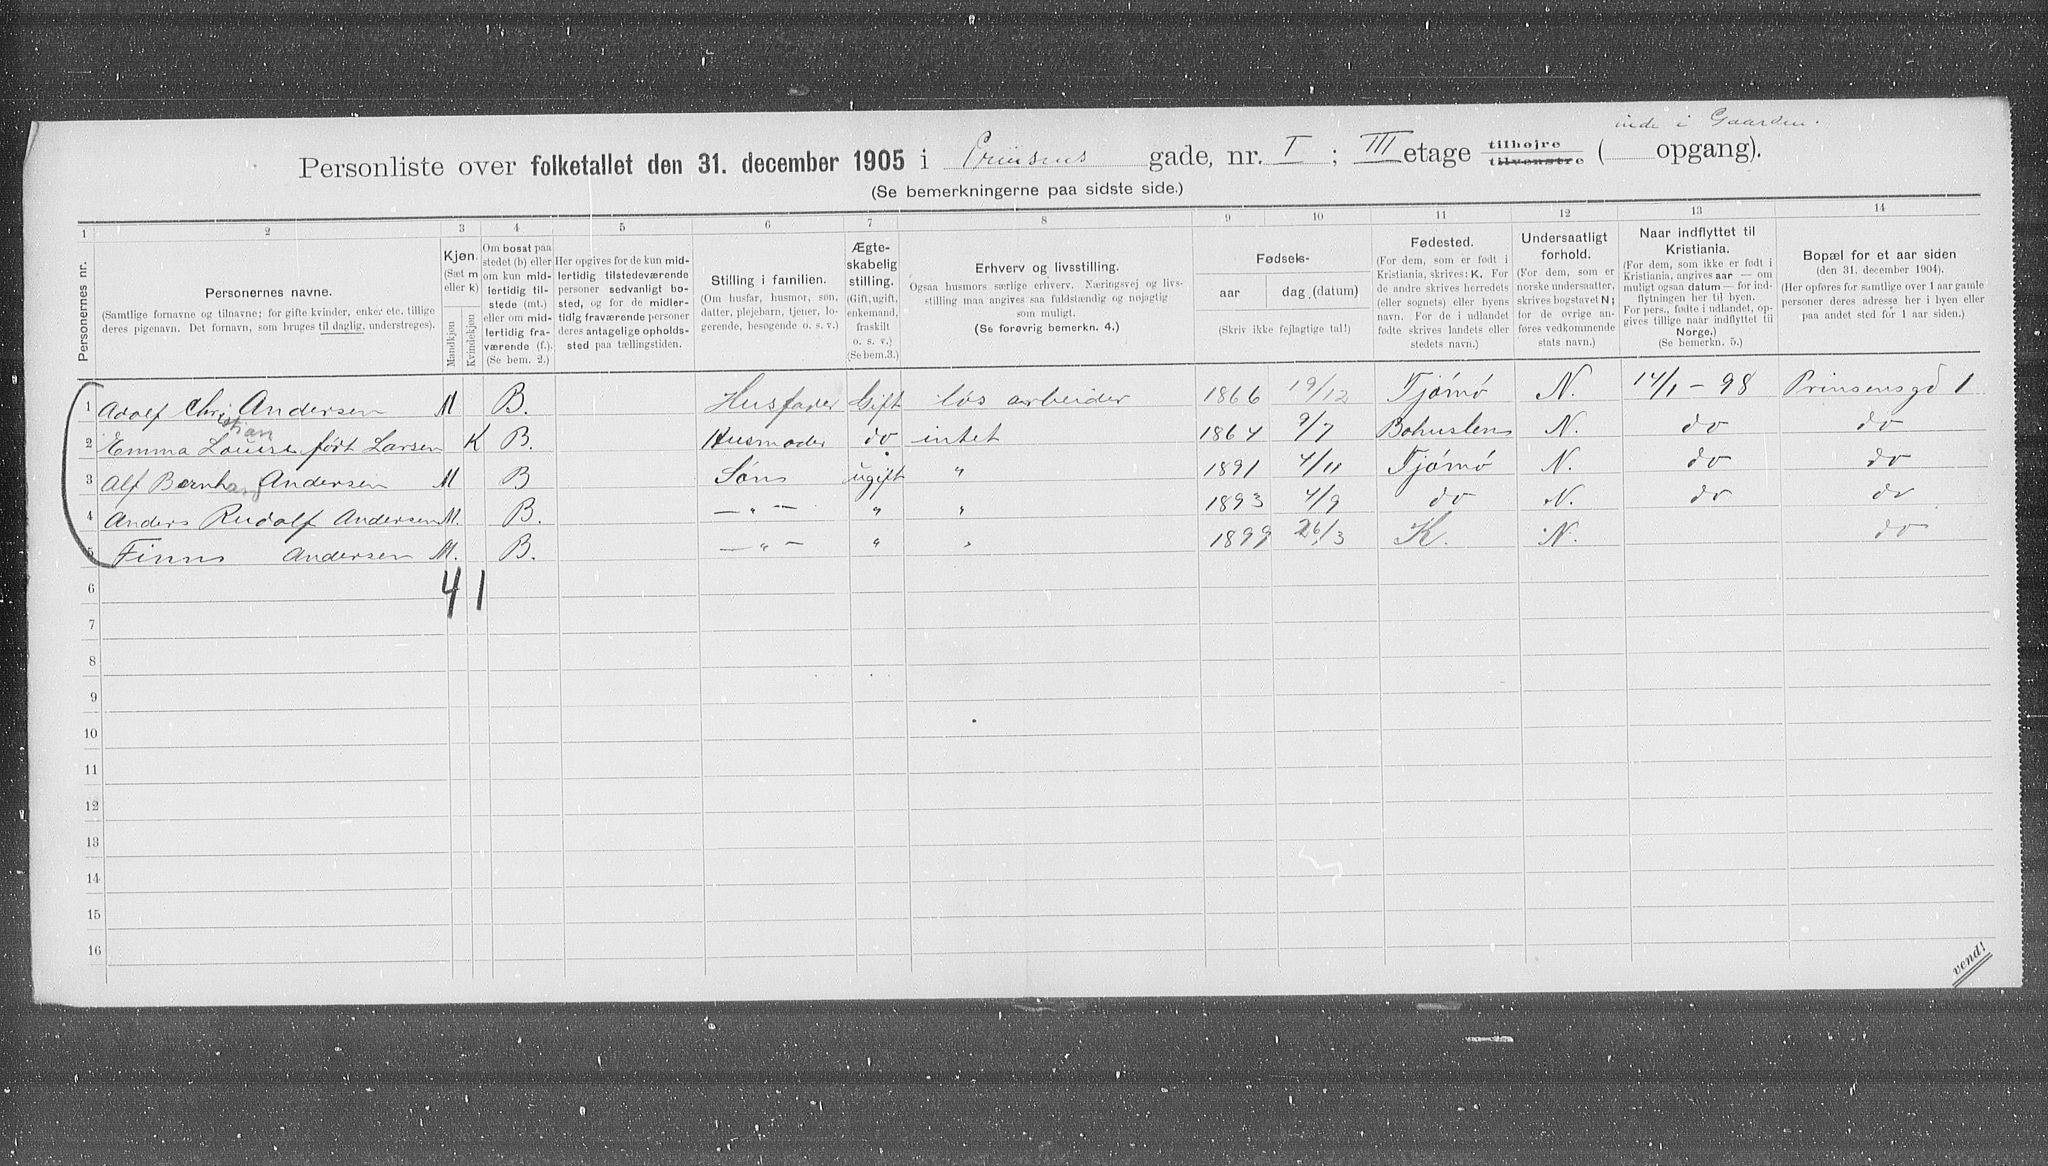 inde i Gaarden.
Personliste over folketallet den 31. december 1905 i Prinsens gade, nr. I ; III etage tilhøjre tilvenstre ( opgang).
(Se bemerkningerne paa sidste side.)
1 2 3 4 5 6 7 8 9 10 11 12 13 14
Personernes nr.
Personernes navne.
(Samtlige fornavne og tilnavne; for gifte kvinder, enker etc. tillige
deres pigenavn. Det fornavn, som bruges til daglig, understreges).
Kjøn.
(Sæt m
eller k)
Mandkjøn
Kvindekjøn
Om bosat paa
stedet (b) eller
om kun mid-
lertidig til-
stede (mt.)
eller om mid-
lertidig fra-
værende (f.).
(Se bem. 2.)
Her opgives for de kun mid-
lertidig tilstedeværende
personer sedvanligt bo-
sted, og for de midler-
tidig fraværende personer
deres antagelige opholds-
sted paa tællingstiden.
Stilling i familien.
(Om husfar, husmor, søn,
datter, plejebarn, tjener, lo-
gerende, besøgende o. s. v.)
Ægte-
skabelig
stilling.
(Gift, ugift,
enkemand,
fraskilt
o. s. v.)
(Se bem.3.)
Erhverv og livsstilling.
Ogsaa husmors særlige erhverv. Næringsvej og livs-
stilling maa angives saa fuldstændig og nøjagtig
som muligt.
(Se forøvrig bemerkn. 4.)
Fødsels-
aar dag (datum)
(Skriv ikke fejlagtige tal!)
Fødested.
(For dem, som er født i
Kristiania, skrives: K. For
de andre skrives herredets
(eller sognets) eller byens
navn. For de i udlandet
fødte skrives landets eller
stedets navn.)
Undersaatligt
forhold.
(For dem, som er
norske undersaatter,
skrives bogstavet N;
for de øvrige an-
føres vedkommende
stats navn.)
Naar indflyttet til
Kristiania.
(For dem, som ikke er født i
Kristiania, angives aar — om
muligt ogsaa datum — for ind-
flytningen her til byen.
For pers., fødte i udlandet, op-
gives tillige naar indflyttet til
Norge.)
(Se bemerkn. 5.)
Bopæl for et aar siden
(den 31. december 1904).
(Her opføres for samtlige over 1 aar gamle
personer deres adresse her i byen eller
paa andet sted for 1 aar siden.)
1 Adolf Christian Andersen M B. Husfader Gift løs arbeider 1866 19/12 Tjømø N. 14/1 - 98 Prinsensgd 1
2 Emma Louise født Larsen K B. Husmoder do intet 1864 9/7 Bohuslen N. do do
3 Alf Bernhard Andersen M B Søn ugift " 1891 4/11 Tjømø N. do do
4 Anders Rudolf Andersen M. B. — " — " " 1893 4/9 do N. do do
5 Finn Andersen M. B. — " — " " 1899 26/3 K. N. do
6 4 1
7
8
9
10
11
12
13
14
15
16
vend!